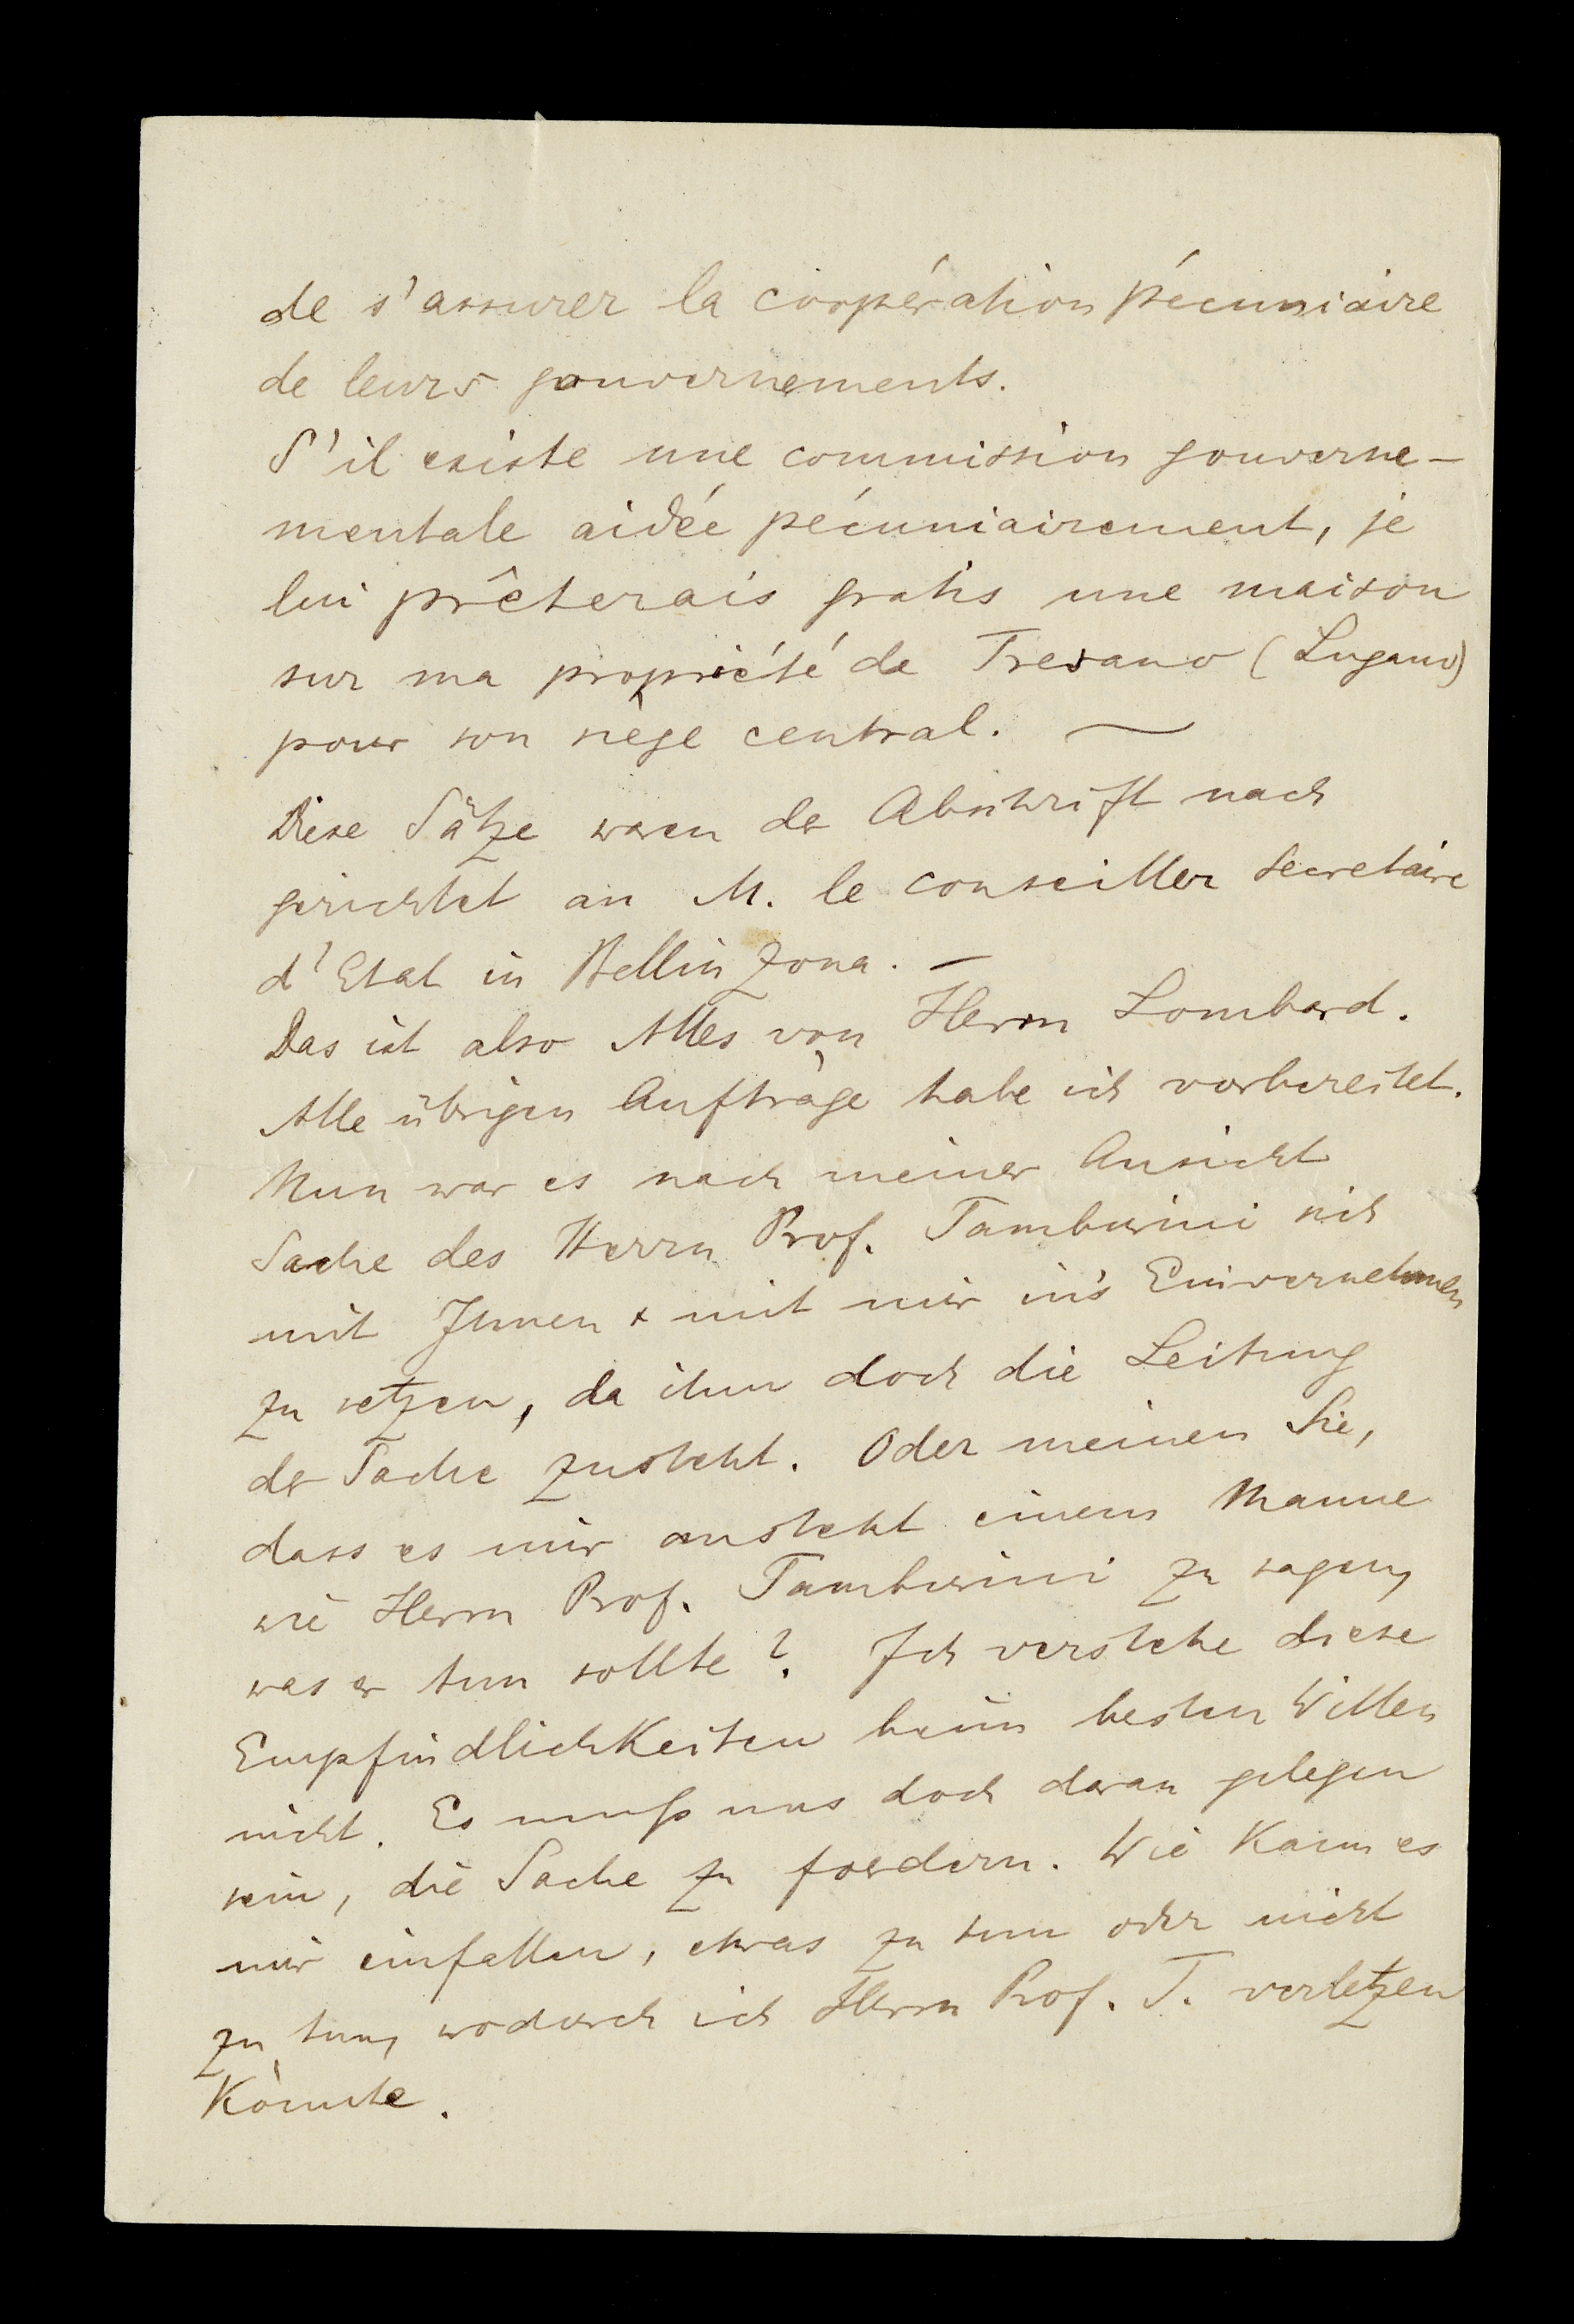 de s'assurer la coopération pécuniaire
de leurs gouvernements.
S'il existe une commission gouverne-
mentale aidée pécuniairement, je
lui prêterais gratis une maison
sur ma propriété de Trevano (Lugano)
pour son siège central. —
Diese Sätze waren der Abschrift nach
gerichtet an M. le conseiller Secretaire
d'Etat in Bellinzona. —
Das ist also Alles von Herrn Lombard.
Alle übrigen Aufträge habe ich vorbereitet.
Nun war es nach meiner Ansicht
Sache des Herrn Prof. Tamburini sich
mit Ihnen & mit mir in's Einvernehmen
zu setzen, da ihm doch die Leitung
der Sache zusteht. Oder meinen Sie,
dass es mir ansteht einem Manne
wie Herrn Prof. Tamburini zu sagen,
was er tun sollte? Ich verstehe diese
Empfindlichkeiten beim besten Willen
nicht. Es muß uns doch daran gelegen
sein, die Sache zu foerdern. Wie kann es
mir einfallen, etwas zu tun oder nicht
zu tun, wodurch ich Herrn Prof. T. verletzen
könnte.